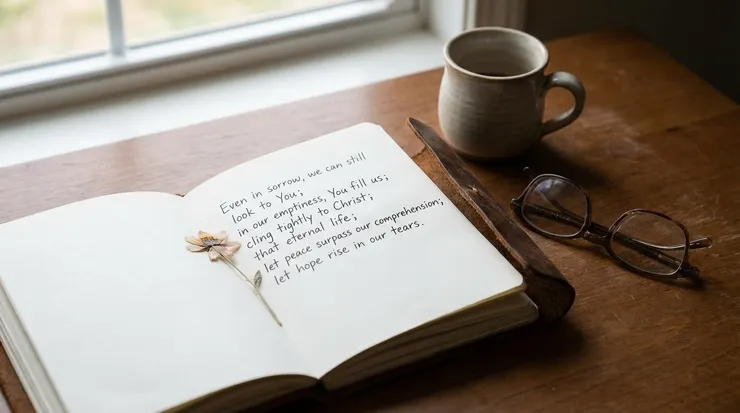 Even in sorrow, we can still
look to You;
in our emptiness, You fill us;
cling tightly to Christ;
that eternal life;
let peace surpass our comprehension;
let hope rise in our tears.